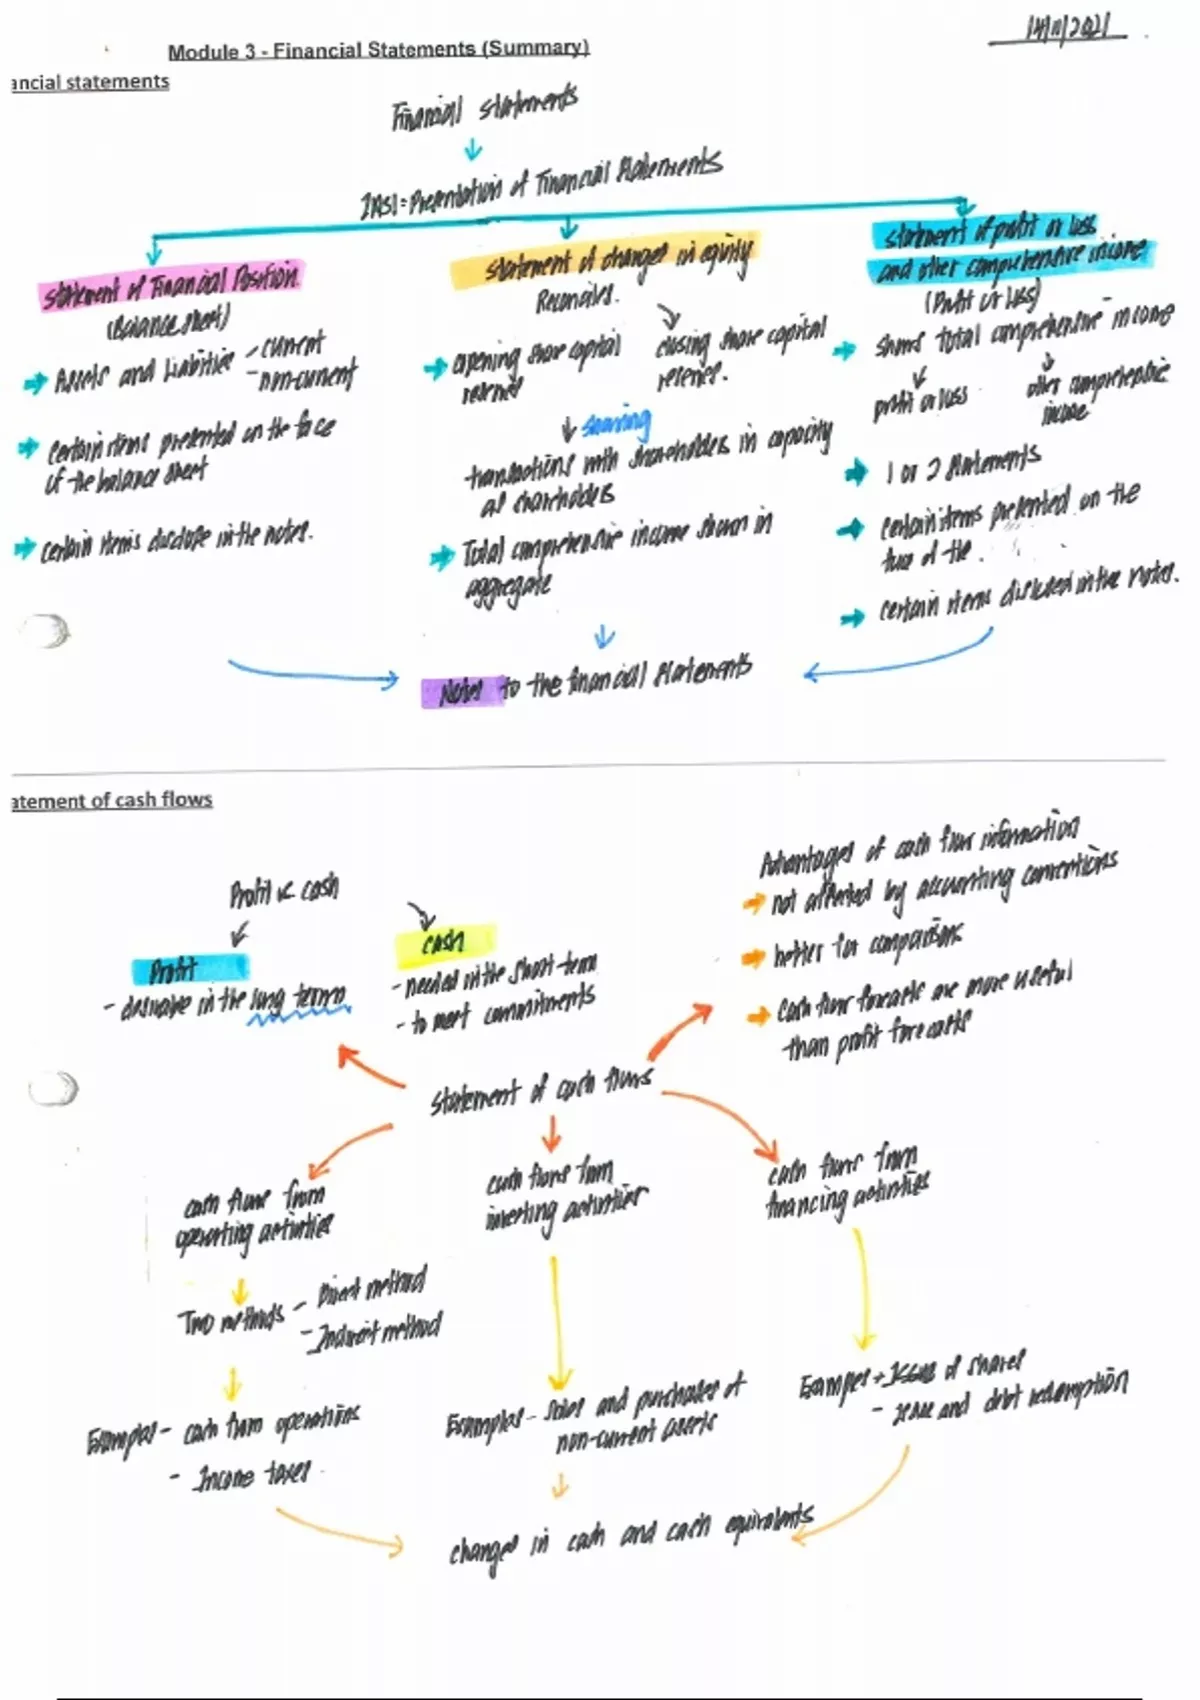 14/11/2021
Module 3 - Financial Statements (Summary)
ancial statements
Financial statements
IAS1 = Presentation of Financial Statements
Statement of Financial Position.
(Balance sheet)
Assets and Liabilities - current
- non-current
certain items presented on the face
of the balance sheet
certain items disclose in the notes.
statement of changes in equity
Reconciles.
opening share capital
reserves
closing share capital
reserves.
showing
transactions with shareholders in capacity
as shareholders
Total comprehensive income shown in
aggregate
statement of profit or loss
and other comprehensive income
(Profit or Loss)
shows total comprehensive income
profit or loss
other comprehensive
income
1 or 2 statements
certain items presented on the
face of the.
certain items disclosed in the notes.
Notes to the financial statements
atement of cash flows
Profit vs cash
Profit
- desirable in the long term
cash
- needed in the short-term
- to meet commitments
Advantages of cash flow information
not affected by accounting conventions
better for comparisons
cash flow forecasts are more useful
than profit forecasts
statement of cash flows
cash flows from
operating activities
Two methods - Direct method
- Indirect method
Examples - cash from operations
- Income taxes
cash flows from
investing activities
Examples - sales and purchases of
non-current assets
cash flows from
financing activities
Examples - Issue of shares
- issue and debt redemption
changes in cash and cash equivalents